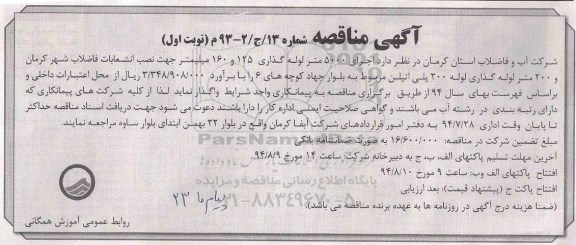 آگهی مناقصه شماره ۱۳/ج/۲-۹۳ م (نوبت اول)
شرکت آب و فاضلاب استان کرمان در نظر دارد اجرای ۵۰۰۰ متر لوله گذاری ۱۲۵ و ۱۶۰ میلیمتر جهت نصب انشعابات فاضلاب شهر کرمان
و ۲۰۰ متر لوله گذاری لوله ۲۰۰ پلی اتیلن مربوط به بلوار جهاد کوچه های ۶ را با برآورد ۳/۳۴۸/۹۰۸/۰۰۰ ریال از محل اعتبارات داخلی و
براساس فهرست بهای سال ۹۴ از طریق برگزاری مناقصه به پیمانکاری واجد شرایط واگذار نماید لذا از کلیه شرکت های پیمانکاری که
دارای رتبه بندی در رشته آب می باشند و گواهی صلاحیت ایمنی اداره کار را دارا باشند دعوت می شود جهت دریافت اسناد مناقصه حداکثر
تا پایان وقت اداری ۹۴/۷/۲۸ به دفتر امور قراردادهای شرکت آبفا کرمان واقع در بلوار ۲۲ بهمن ابتدای بلوار ساوه مراجعه نمایند.
مبلغ تضمین شرکت در مناقصه: ۱۶/۶۰۰/۰۰۰ به صورت ضمانتنامه بانکی
آخرین مهلت تسلیم پاکتهای الف، ب، ج به دبیرخانه شرکت: ساعت ۱۴ مورخ ۹۴/۸/۹
افتتاح پاکتهای الف وب: ساعت ۹ مورخ ۹۴/۸/۱۰
افتتاح پاکت ج (پیشنهاد قیمت): بعد ارزیابی
(ضمنا هزینه درج آگهی در روزنامه ها به عهده برنده مناقصه می باشد)
پیام ما ۲۳
روابط عمومی آموزش همگانی
ParsNamadData
پایگاه اطلاع رسانی مناقصه و مزایده
۰۲۱-۸۸۳۴۹۶۷۰-۵